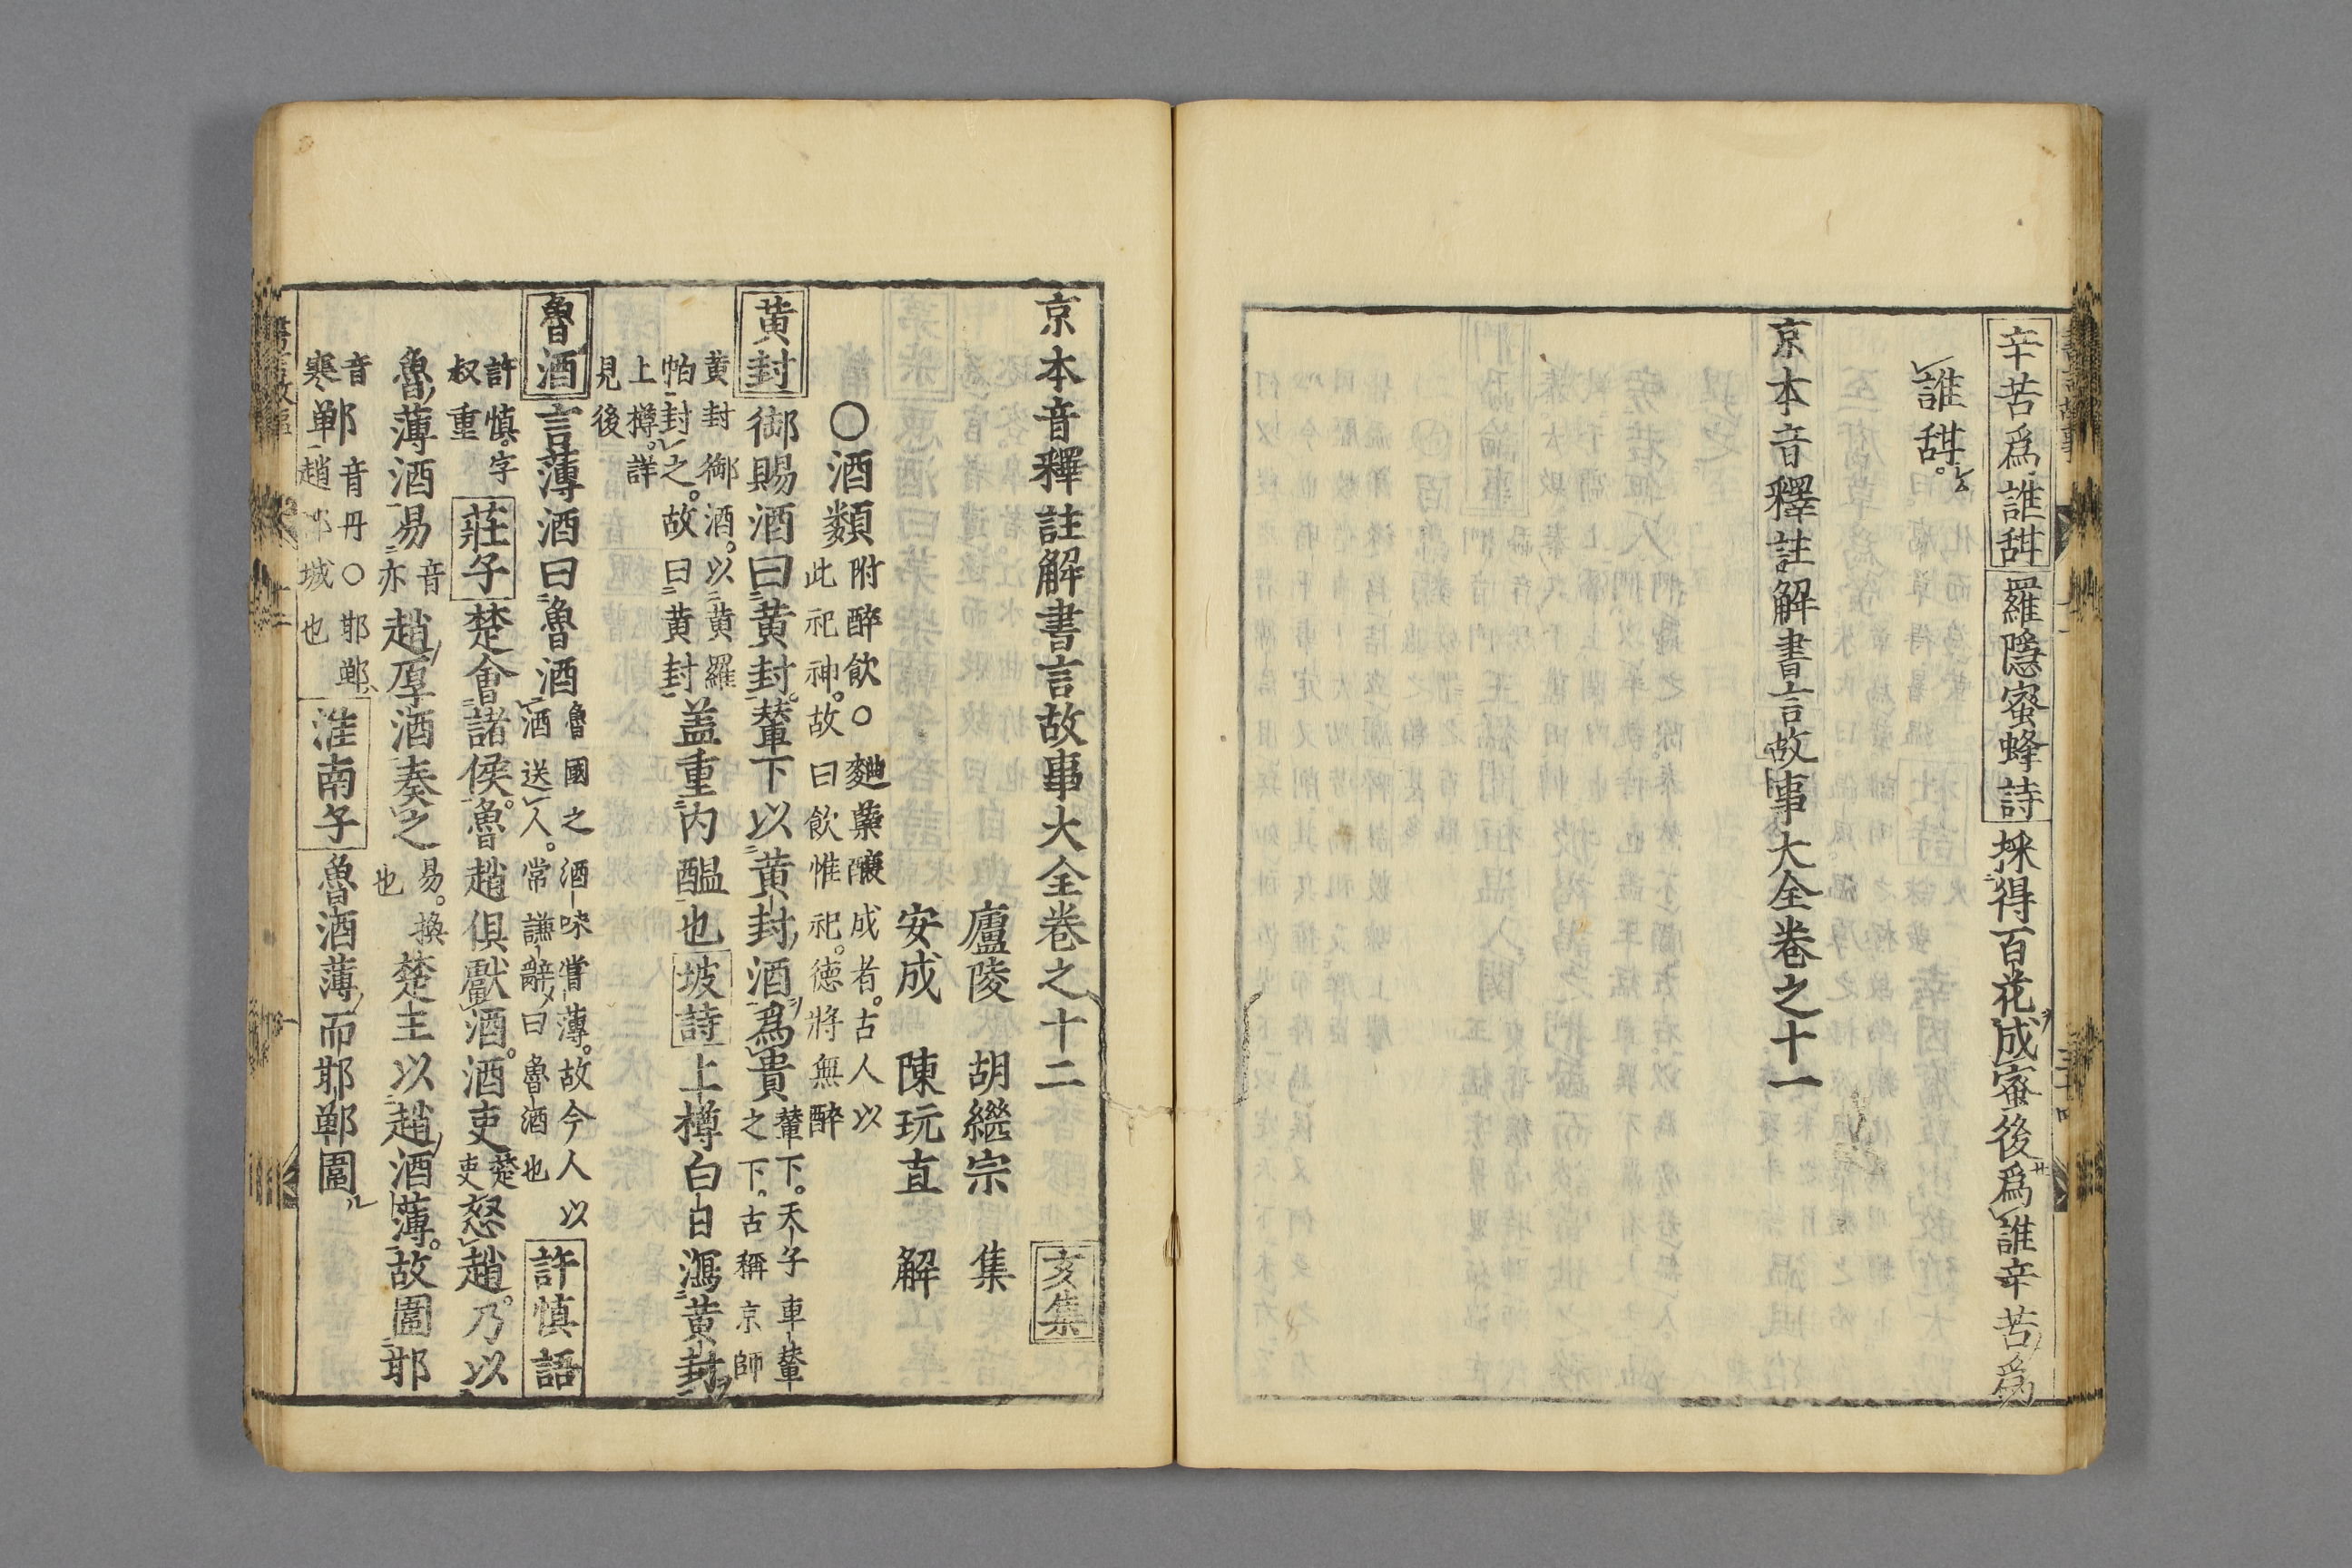 辛苦為誰甜 羅隱蜜蜂詩 採得百花成蜜後為誰辛苦為
誰甜
京本音釋註解書言故事大全卷之十一
京本音釋註解書言故事大全卷之十二 亥集
廬陵 胡繼宗 集
安成 陳玩直 解
○酒類 附醉飲○麯櫱釀成者。古人以
此祀神。故曰飲惟祀。德將無醉
黃封 御賜酒曰黃封輦下以黃封酒為貴 輦下。天子車輦
之下。古稱京師
黃封御酒。以黃羅
帕封之。故曰黃封 盖重內醞也 坡詩 上樽白日瀉黃封
上樽。詳
見後
魯酒 言薄酒曰魯酒 魯國之酒味嘗薄。故今人以
酒送人。常謙辭曰魯酒也 許慎語
許慎。字
叔重 莊子 楚會諸侯。魯趙俱獻酒。酒吏 楚
吏 怒趙。乃以
魯薄酒易 音
亦 趙厚酒奏之 易。換
也 楚王以趙酒薄。故圍邯
音
寒 鄲 音丹○邯鄲
趙 城也 淮南子 魯酒薄而邯鄲圍